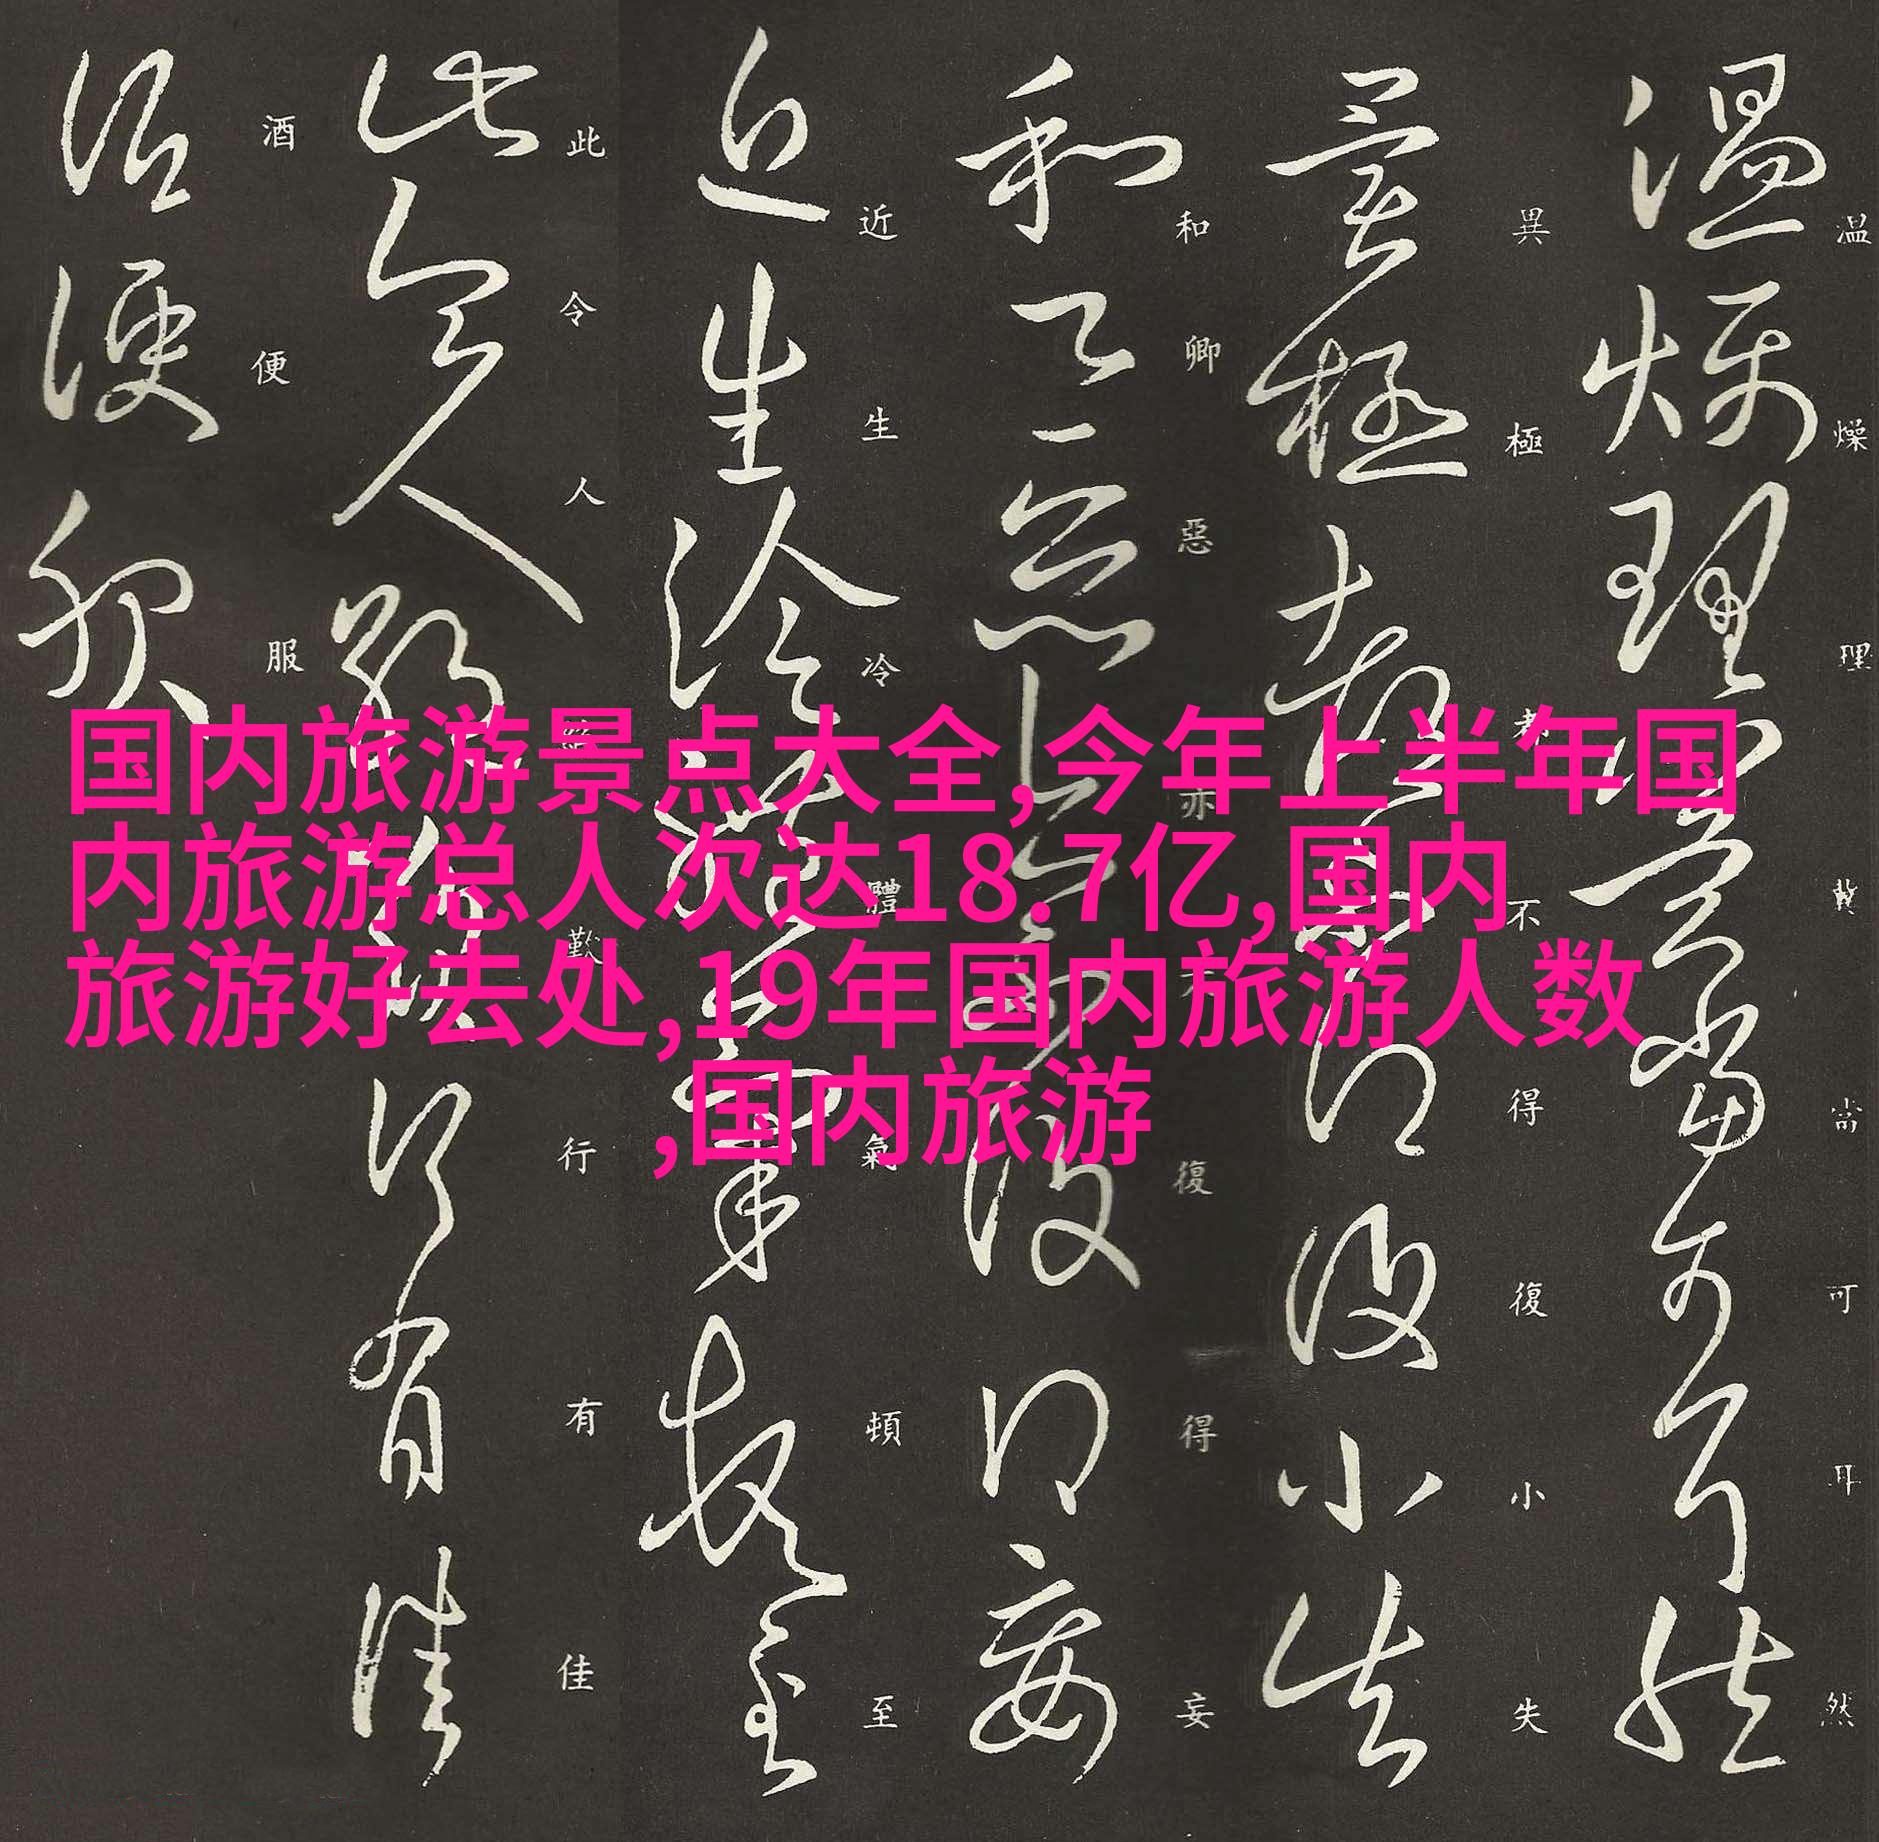 国内旅游景点大全,今年上半年国
内旅游总人次达18.7亿,国内
旅游好去处,19年国内旅游人数
,国内旅游
温燥理冀當可耳然
異極都不得復小失
和卿惡亦不復得妄
近生冷體氣頓至
此令人歎行有佳
酒便服